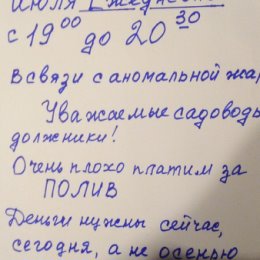 июля Ежедневно
с 19⁰⁰ до 20³⁰
В связи с аномальной жа
Уважаемые садоводы
должники!
Очень плохо платим за
ПОЛИВ
Деньги нужны сейчас,
сегодня, а не осенью